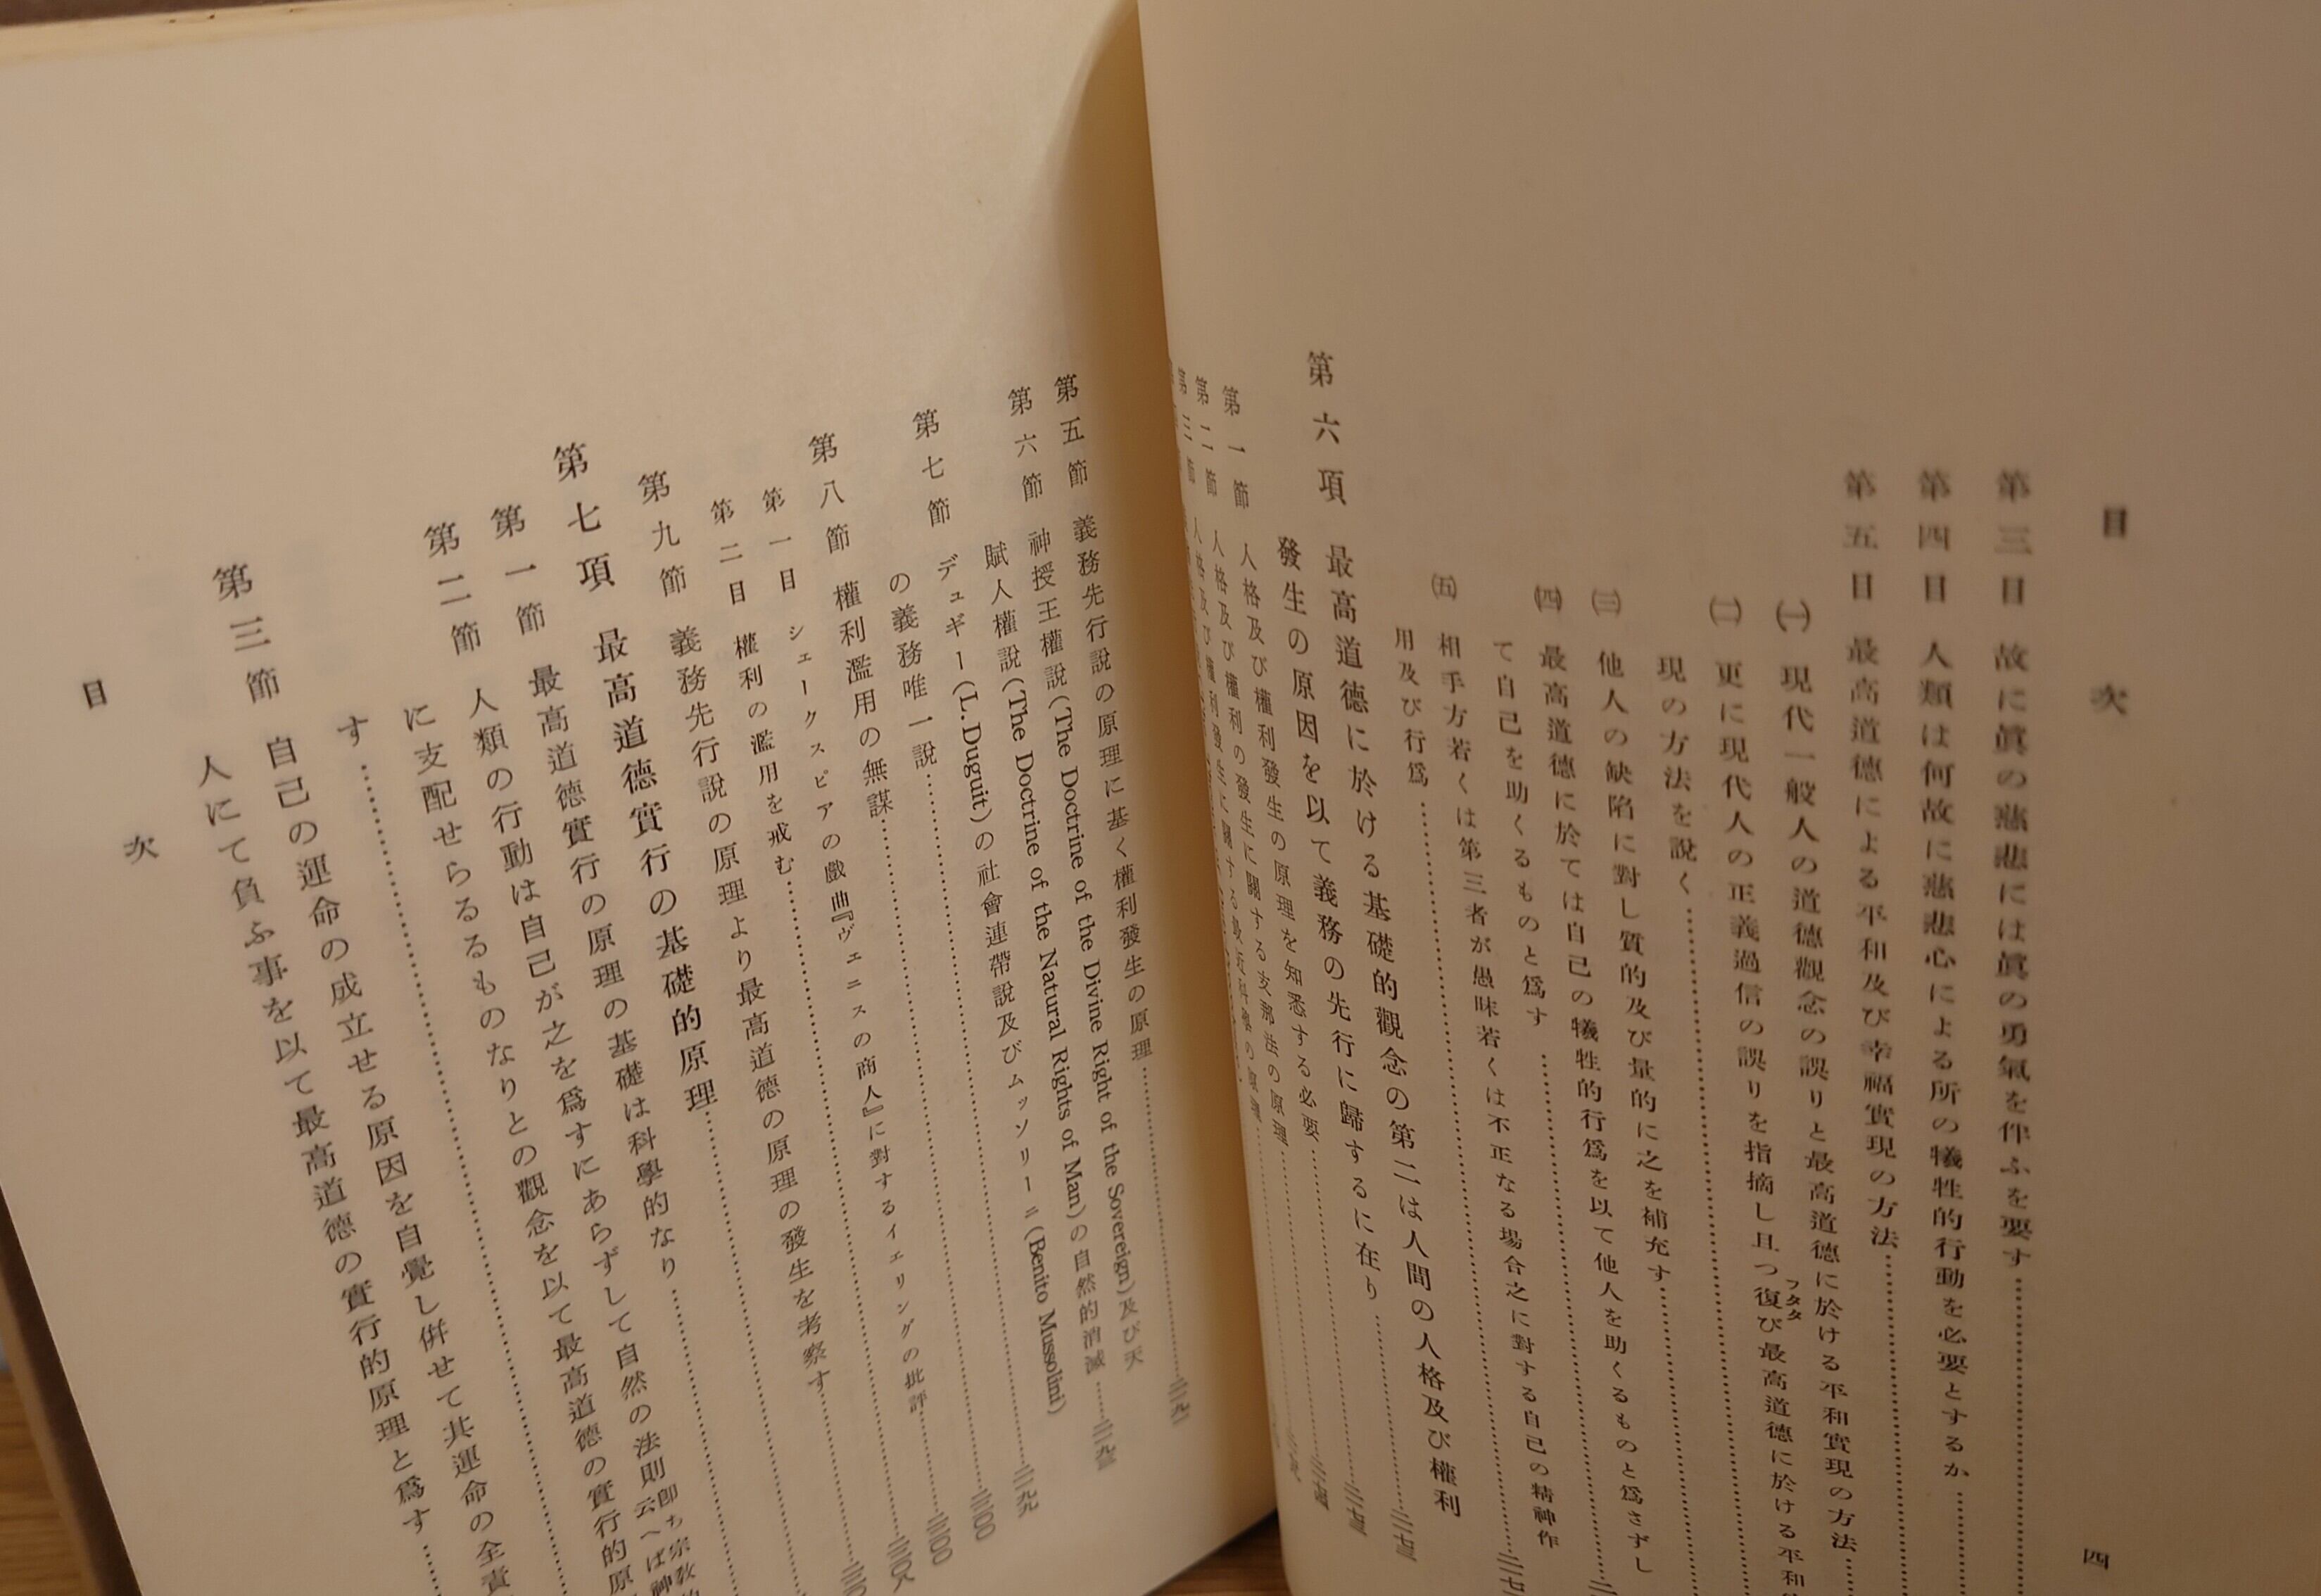 目次
第三目 故に眞の慈悲には眞の勇氣を伴ふを要す
第四目 人類は何故に慈悲心による所の犧牲的行動を必要とするか
第五目 最高道德による平和及び幸福實現の方法
㈠ 現代一般人の道德觀念の誤りと最高道德に於ける平和實現の方法
㈡ 更に現代人の正義過信の誤りを指摘し且つ復び最高道德に於ける平和
フタタ
現の方法を説く
㈢ 他人の缺陷に對し質的及び量的に之を補充す
㈣ 最高道德に於ては自己の犧牲的行爲を以て他人を助くるものと爲さずし
て自己を助くるものと爲す
㈤ 相手方若くは第三者が愚昧若くは不正なる場合之に對する自己の精神作
用及び行爲
第六項 最高道德に於ける基礎的觀念の第二は人間の人格及び權利
發生の原因を以て義務の先行に歸するに在り
第一節 人格及び權利發生の原理を知悉する必要
第二節 人格及び權利の發生に關する支那法の原理
第三節 人格及び權利發生に關する
四
第五節 義務先行説の原理に基く權利發生の原理
第六節 神授王權説(The Doctrine of the Divine Right of the Sovereign)及び天
賦人權説(The Doctrine of the Natural Rights of Man)の自然的消滅
第七節 デュギー(L. Duguit)の社會連帶説及びムッソリーニ(Benito Mussolini)
の義務唯一説 三〇〇
第八節 權利濫用の無謀 三〇〇
第一目 シェークスピアの戲曲『ヴェニスの商人』に對するイェリングの批評
第二目 權利の濫用を戒む
第九節 義務先行説の原理より最高道德の原理の發生を考察す
第七項 最高道德實行の基礎的原理
第一節 最高道德實行の原理の基礎は科學的なり
第二節 人類の行動は自己が之を爲すにあらずして自然の法則 卽ち宗敎的
云へば神
に支配せらるるものなりとの觀念を以て最高道德の實行的原
す
第三節 自己の運命の成立せる原因を自覺し併せて其運命の全責
人にて負ふ事を以て最高道德の實行的原理と爲す
目次